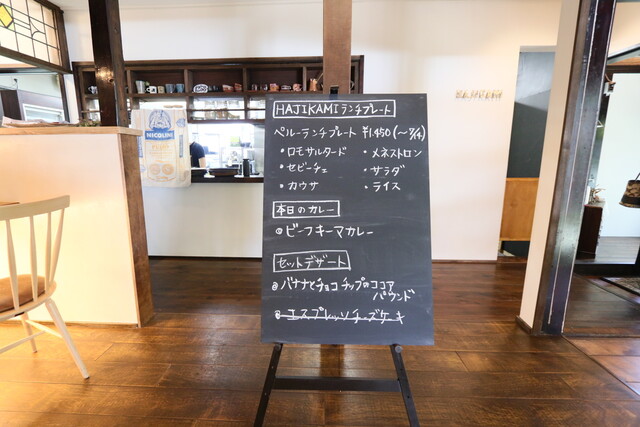 HAJIKAMI ランチプレート
ペルーランチプレート ¥1,450 (〜7/14)
・ロモサルタード ・メネストロン
・セビーチェ ・サラダ
・カウサ ・ライス
本日のカレー
◎ビーフキーマカレー
セットデザート
◎バナナとチョコチップのココア
パウンド
◎エスプレッソチーズケーキ
NICQUIN
HAJIKAMI